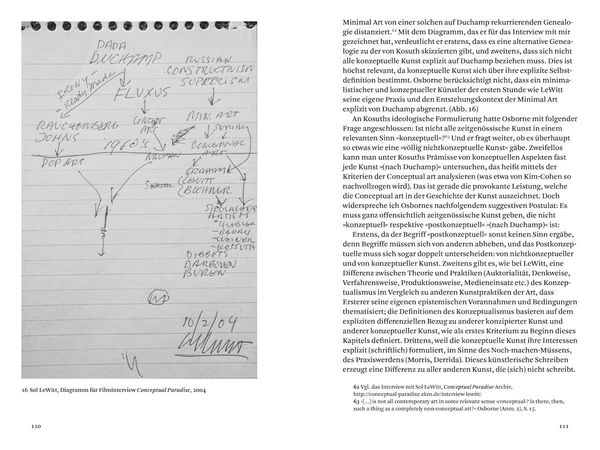 DADA
DUCHAMP
RUSSIAN
CONSTRUCTIVISM
SUPREMISM
IRONY
Ready Made
FLUXUS
RAUCHENBERG
JOHNS
CONCEPT
ART
MIN. ART
SERIAL
1960S
CONCEPTUAL
ART
POP ART
GRAHAM
LEWITT
BOCHNER
ARTISTS
HUEBLER
BARRY
WEINER
KOSSUTH
DIBBETS
DARBOVEN
BUREN
10/2/04
16 Sol LeWitt, Diagramm für Filminterview Conceptual Paradise, 2004
110
Minimal Art von einer solchen auf Duchamp rekurrierenden Genealo-
gie distanziert.62 Mit dem Diagramm, das er für das Interview mit mir
gezeichnet hat, verdeutlicht er erstens, dass es eine alternative Genea-
logie zu der von Kosuth skizzierten gibt, und zweitens, dass sich nicht
alle konzeptuelle Kunst explizit auf Duchamp beziehen muss. Dies ist
höchst relevant, da konzeptuelle Kunst sich über ihre explizite Selbst-
definition bestimmt. Osborne berücksichtigt nicht, dass ein minima-
listischer und konzeptueller Künstler der ersten Stunde wie LeWitt
seine eigene Praxis und den Entstehungskontext der Minimal Art
explizit von Duchamp abgrenzt. (Abb. 16)
An Kosuths ideologische Formulierung hatte Osborne mit folgender
Frage angeschlossen: Ist nicht alle zeitgenössische Kunst in einem
relevanten Sinn »konzeptuell«?63 Und er fragt weiter, ob es überhaupt
so etwas wie eine »völlig nichtkonzeptuelle Kunst« gäbe. Zweifellos
kann man unter Kosuths Prämisse von konzeptuellen Aspekten fast
jede Kunst »(nach Duchamp)« untersuchen, das heißt mittels der
Kriterien der Conceptual art analysieren (was etwa von Kim-Cohen so
nachvollzogen wird). Das ist gerade die provokante Leistung, welche
die Conceptual art in der Geschichte der Kunst auszeichnet. Doch
widerspreche ich Osbornes nachfolgendem suggestiven Postulat: Es
muss ganz offensichtlich zeitgenössische Kunst geben, die nicht
»konzeptuell« respektive »postkonzeptuell« »(nach Duchamp)« ist:
Erstens, da der Begriff »postkonzeptuell« sonst keinen Sinn ergäbe,
denn Begriffe müssen sich von anderen abheben, und das Postkonzep-
tuelle muss sich sogar doppelt unterscheiden: von nichtkonzeptueller
und von konzeptueller Kunst. Zweitens gibt es, wie bei LeWitt, eine
Differenz zwischen Theorie und Praktiken (Auktorialität, Denkweise,
Verfahrensweise, Produktionsweise, Medieneinsatz etc.) des Konzep-
tualismus im Vergleich zu anderen Kunstpraktiken der Art, dass
Ersterer seine eigenen epistemischen Vorannahmen und Bedingungen
thematisiert; die Definitionen des Konzeptualismus basieren auf dem
expliziten differenziellen Bezug zu anderer konzipierter Kunst und
anderer konzeptueller Kunst, wie als erstes Kriterium zu Beginn dieses
Kapitels definiert. Drittens, weil die konzeptuelle Kunst ihre Interessen
explizit (schriftlich) formuliert, im Sinne des Noch-machen-Müssens,
des Praxiswerdens (Morris, Derrida). Dieses künstlerische Schreiben
erzeugt eine Differenz zu aller anderen Kunst, die (sich) nicht schreibt.
62 Vgl. das Interview mit Sol LeWitt, Conceptual Paradise-Archiv,
http://conceptual-paradise.zkm.de/interview-lewitt/
63 »[...] is not all contemporary art in some relevant sense ›conceptual‹? Is there, then,
such a thing as a completely non-conceptual art?« Osborne (Anm. 2), S. 15.
111